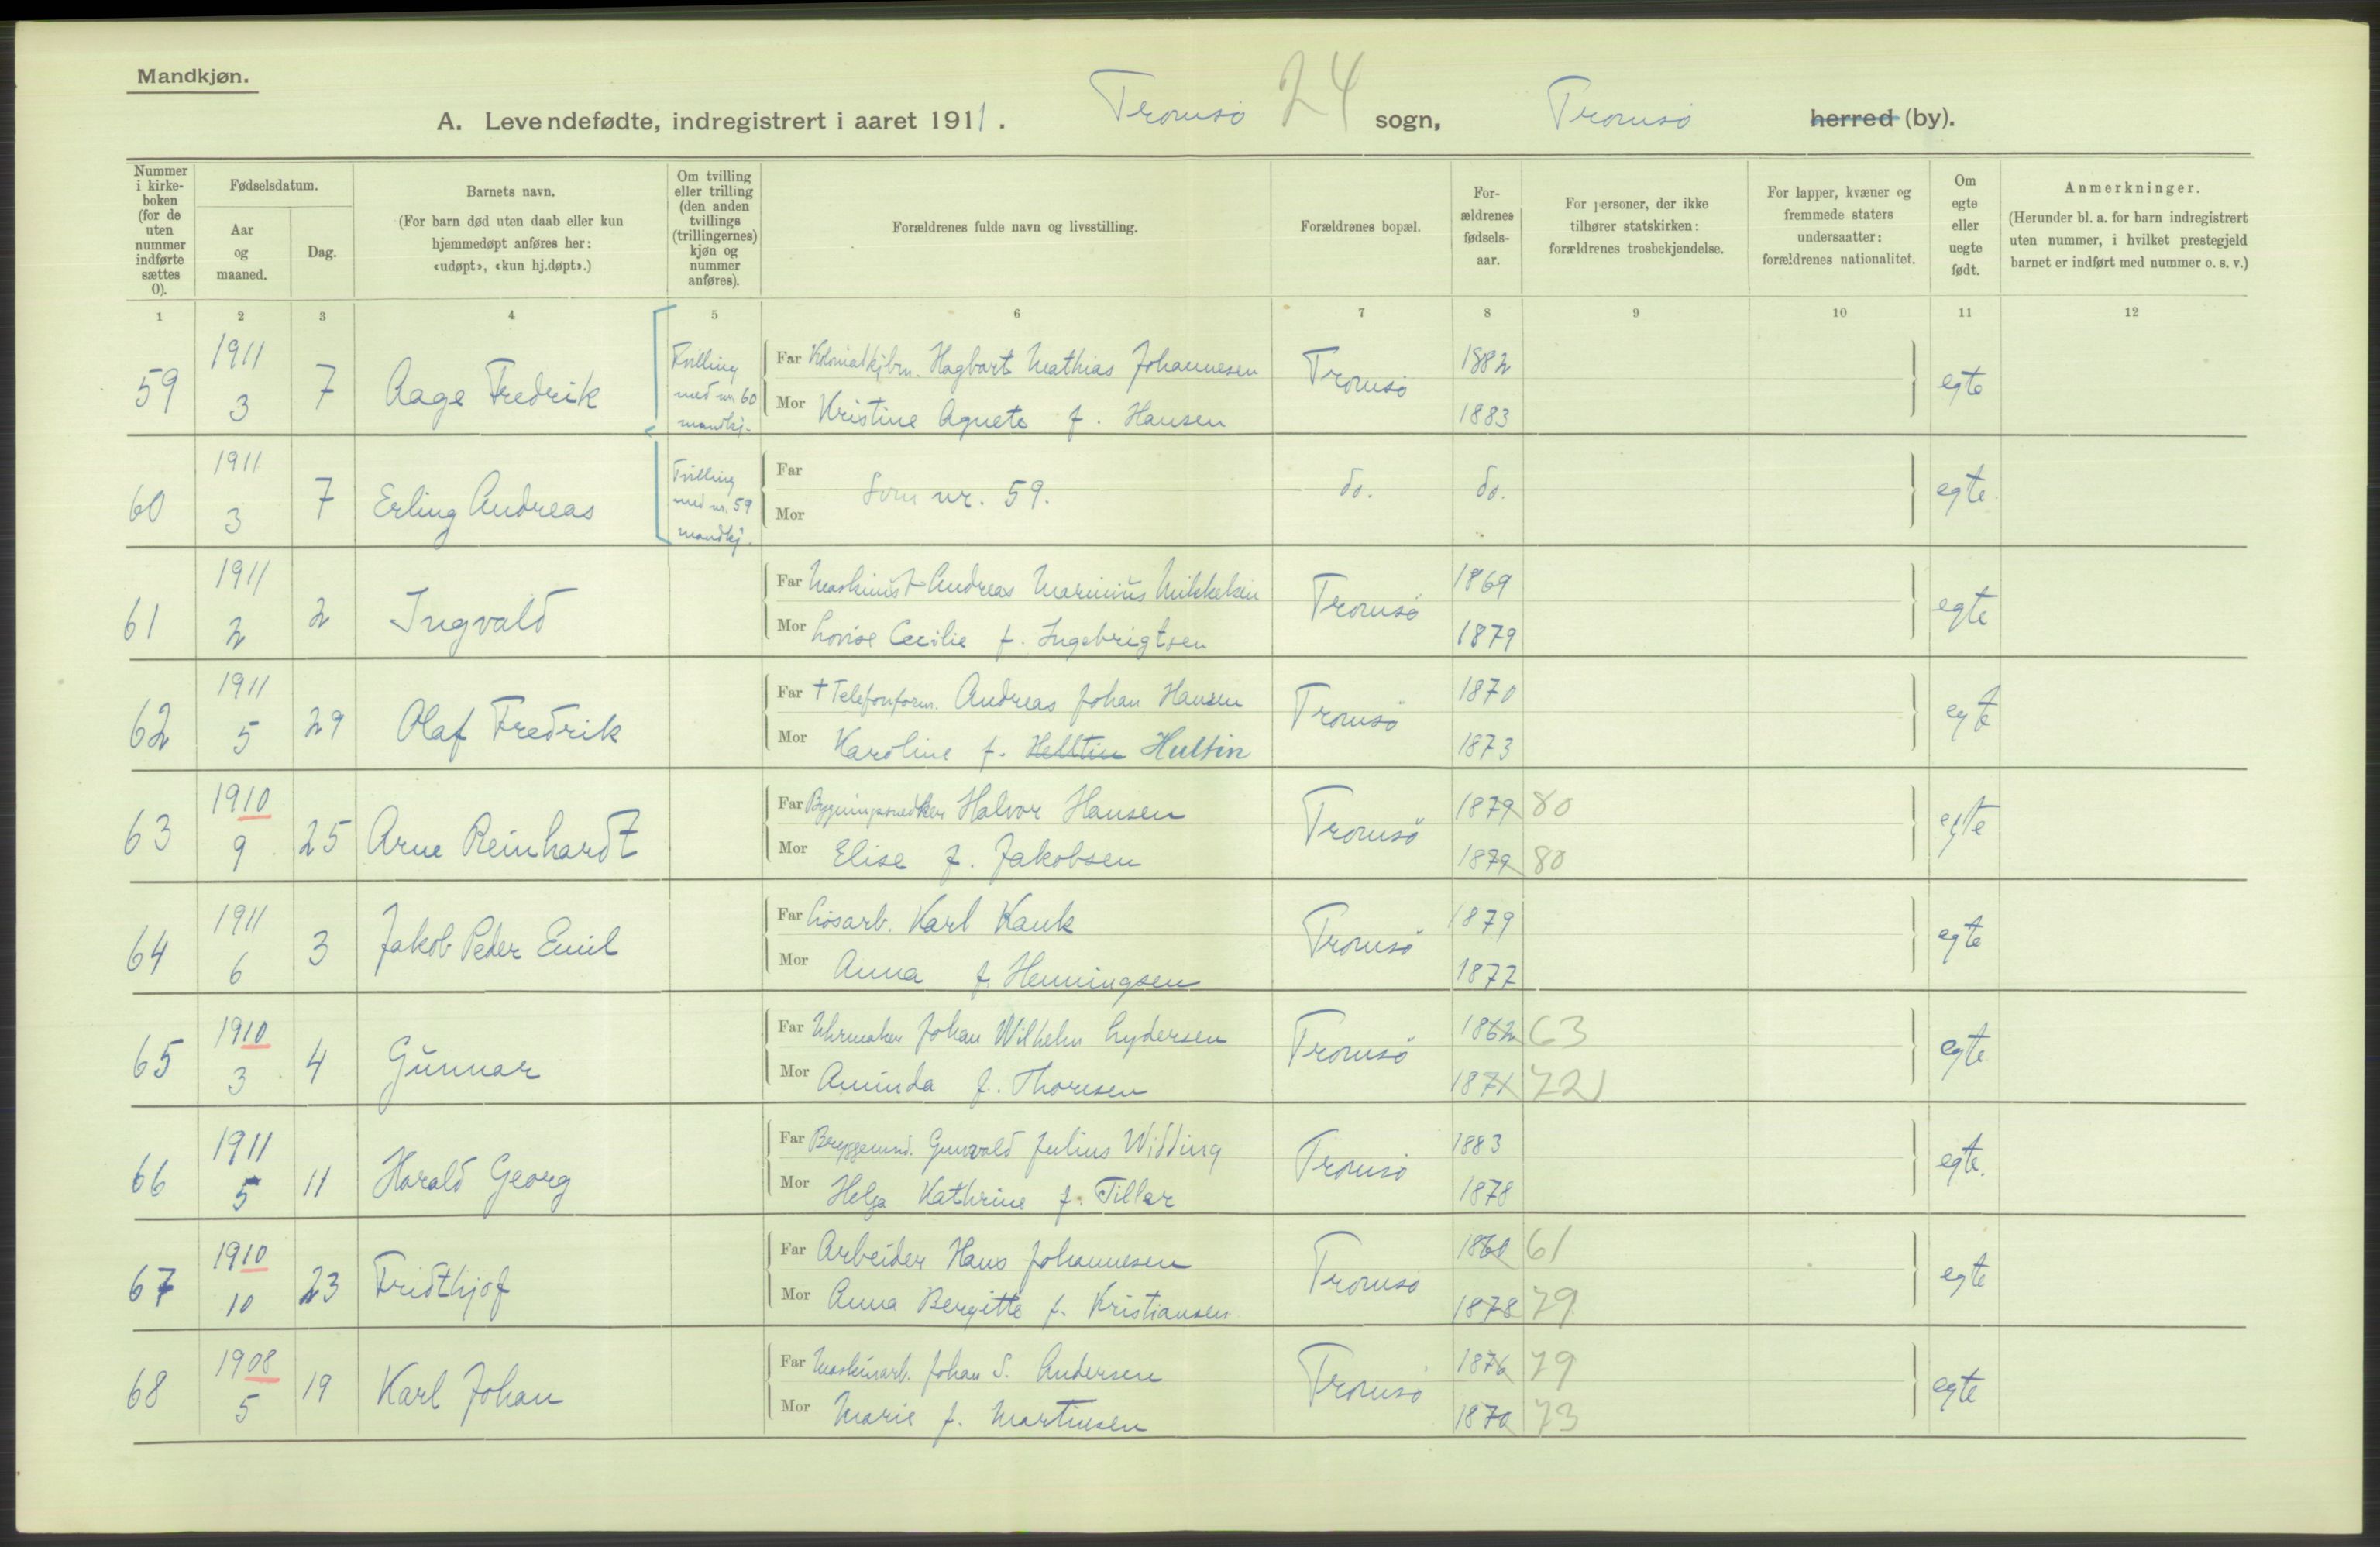 Mandkjøn.
A. Levendefødte, indregistrert i aaret 1911. Tromsø 24 sogn, Tromsø herred (by).
Nummer i kirke-boken (for de uten nummer indførte sættes 0).
Fødselsdatum.
Aar og maaned.
Dag.
Barnets navn.
(For barn død uten daab eller kun hjemmedøpt anføres her: «udøpt», «kun hj.døpt».)
Om tvilling eller trilling (den anden tvillings (trillingernes) kjøn og nummer anføres).
Forældrenes fulde navn og livsstilling.
Forældrenes bopæl.
For-ældrenes fødsels-aar.
For personer, der ikke tilhører statskirken: forældrenes trosbekjendelse.
For lapper, kvæner og fremmede staters undersaatter: forældrenes nationalitet.
Om egte eller uegte født.
Anmerkninger.
(Herunder bl. a. for barn indregistrert uten nummer, i hvilket prestegjeld barnet er indført med nummer o. s. v.)
1 2 3 4 5 6 7 8 9 10 11 12
59 1911 3 7 Aage Fredrik Tvilling med nr. 60 mandkj. Far Kolonialkjbm. Hagbart Mathias Johannesen Tromsø 1882 egte
Mor Kristine Agnete f. Hansen 1883
60 1911 3 7 Erling Andreas Tvilling med nr. 59 mandkj. Far Mor Som nr. 59. do. do. egte
61 1911 2 2 Ingvald Far Maskinist Andreas Marinius Mikkelsen Tromsø 1869 egte
Mor Lovise Cecilie f. Ingebrigtsen 1879
62 1911 5 29 Olaf Fredrik Far † Telefonform. Andreas Johan Hansen Tromsø 1870 egte
Mor Karoline f. Helltin Hultin 1873
63 1910 9 25 Arne Reinhardt Far Bygningssnedker Halvor Hansen Tromsø 1879 80 egte
Mor Elise f. Jakobsen 1879 80
64 1911 6 3 Jakob Peder Emil Far Løsarb. Karl Kauk Tromsø 1879 egte
Mor Anna f. Henningsen 1877
65 1910 3 4 Gunnar Far Uhrmaker Johan Wilhelm Lydersen Tromsø 1862 63 egte
Mor Aminda f. Thoresen 1871 72
66 1911 5 11 Harald Georg Far Bryggemd. Gunvald Julius Widding Tromsø 1883 egte.
Mor Helga Kathrine f. Tiller 1878
67 1910 10 23 Fridthjof Far Arbeider Hans Johannesen Tromsø 1860 61 egte
Mor Anna Bergitte f. Kristiansen 1878 79
68 1908 5 19 Karl Johan Far Maskinarb. Johan S. Andersen Tromsø 1876 79 egte
Mor Marie f. Martinsen 1870 73